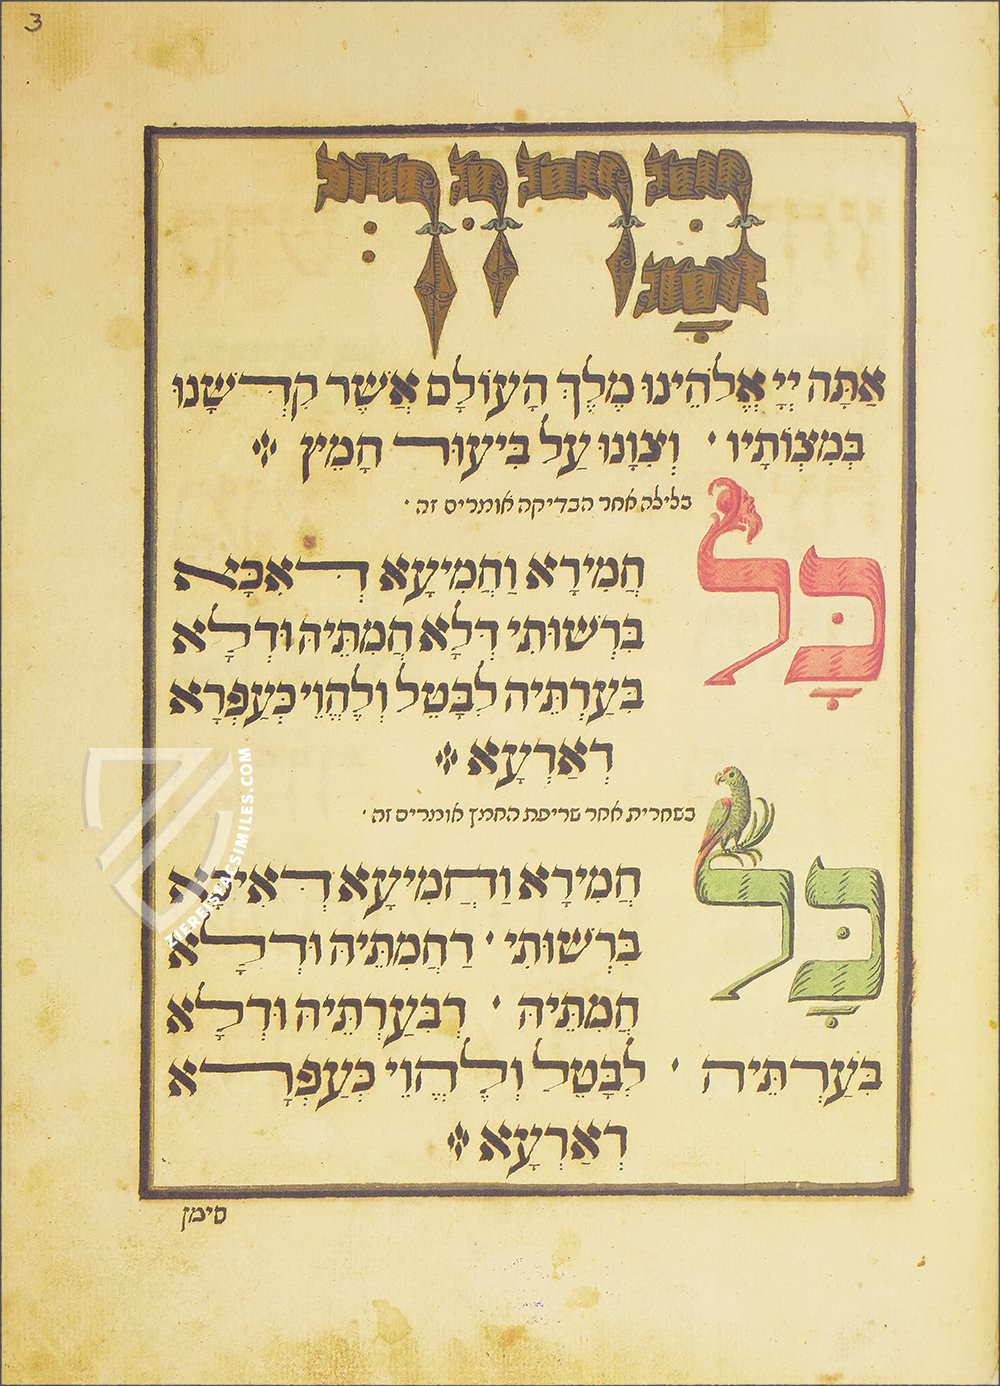 3
בָּרוּךְ
אַתָּה יְיָ אֱלֹהֵינוּ מֶלֶךְ הָעוֹלָם אֲשֶׁר קִדְּשָׁנוּ
בְּמִצְוֹתָיו · וְצִוָּנוּ עַל בִּיעוּר חָמֵץ
בלילה אחר הבדיקה אומרים זה ·
כָּל חֲמִירָא וַחֲמִיעָא דְּאִכָּא
בִּרְשׁוּתִי דְּלָא חֲמִתֵּיהּ וּדְלָא
בִּעַרְתֵּיה לִבָּטֵל וְלֶהֱוֵי כְּעַפְרָא
דְאַרְעָא
בשחרית אחר שריפת החמץ אומרים זה ·
כָּל חֲמִירָא וַחֲמִיעָא דְּאִיכָּא
בִּרְשׁוּתִי · דַחֲמִתֵּיהּ וּדְלָא
חֲמִתֵּיהּ · דְבִּעַרְתֵּיהּ וּדְלָא
בִּעַרְתֵּיה · לִבָּטֵל וְלֶהֱוֵי כְּעַפְרָא
דְאַרְעָא
סימן
ZIEREISFACSIMILES.COM